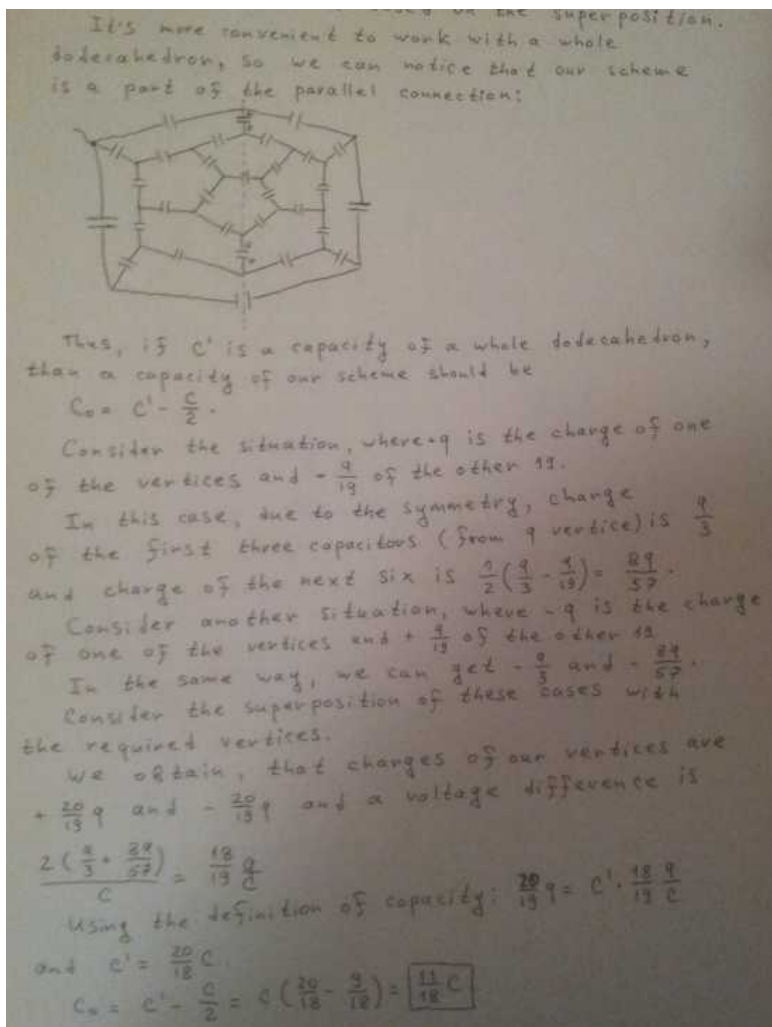 on the superposition.
It's more convenient to work with a whole
dodecahedron, so we can notice that our scheme
is a part of the parallel connection:
Thus, if C' is a capacity of a whole dodecahedron,
than a capacity of our scheme should be
C₀ = C' - C/2.
Consider the situation, where +q is the charge of one
of the vertices and - q/19 of the other 19.
In this case, due to the symmetry, charge
of the first three capacitors (from q vertice) is q/3
and charge of the next six is 1/2 (q/3 - q/19) = 8q/57.
Consider another situation, where -q is the charge
of one of the vertices and + q/19 of the other 19
In the same way, we can get - q/3 and - 8q/57.
Consider the superposition of these cases with
the required vertices.
We obtain, that charges of our vertices are
+ 20/19 q and - 20/19 q and a voltage difference is
2 (q/3 + 8q/57) / C = 18/19 q/C
Using the definition of capacity: 20/19 q = C' · 18/19 q/C
and C' = 20/18 C.
C₀ = C' - C/2 = C (20/18 - 9/18) = 11/18 C